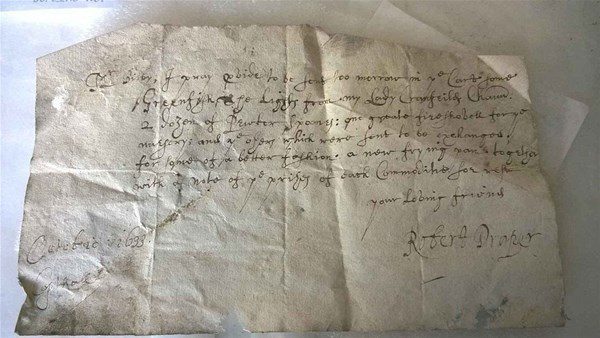 Mr Bilby, I pray pvide to be sent too morrow in ye Cart some
Greenfish, The Lights from my Lady Cranfeild Cham
2 dozen of Pewter spoones: one greate fireshovell for ye
nursery; and ye others which were sent to be exchanged
for some of a better fashion, a new frying pan together
with a note of ye prises of such Commodities for ye rest
your loving friend
Robert Draper
Octobre 1633